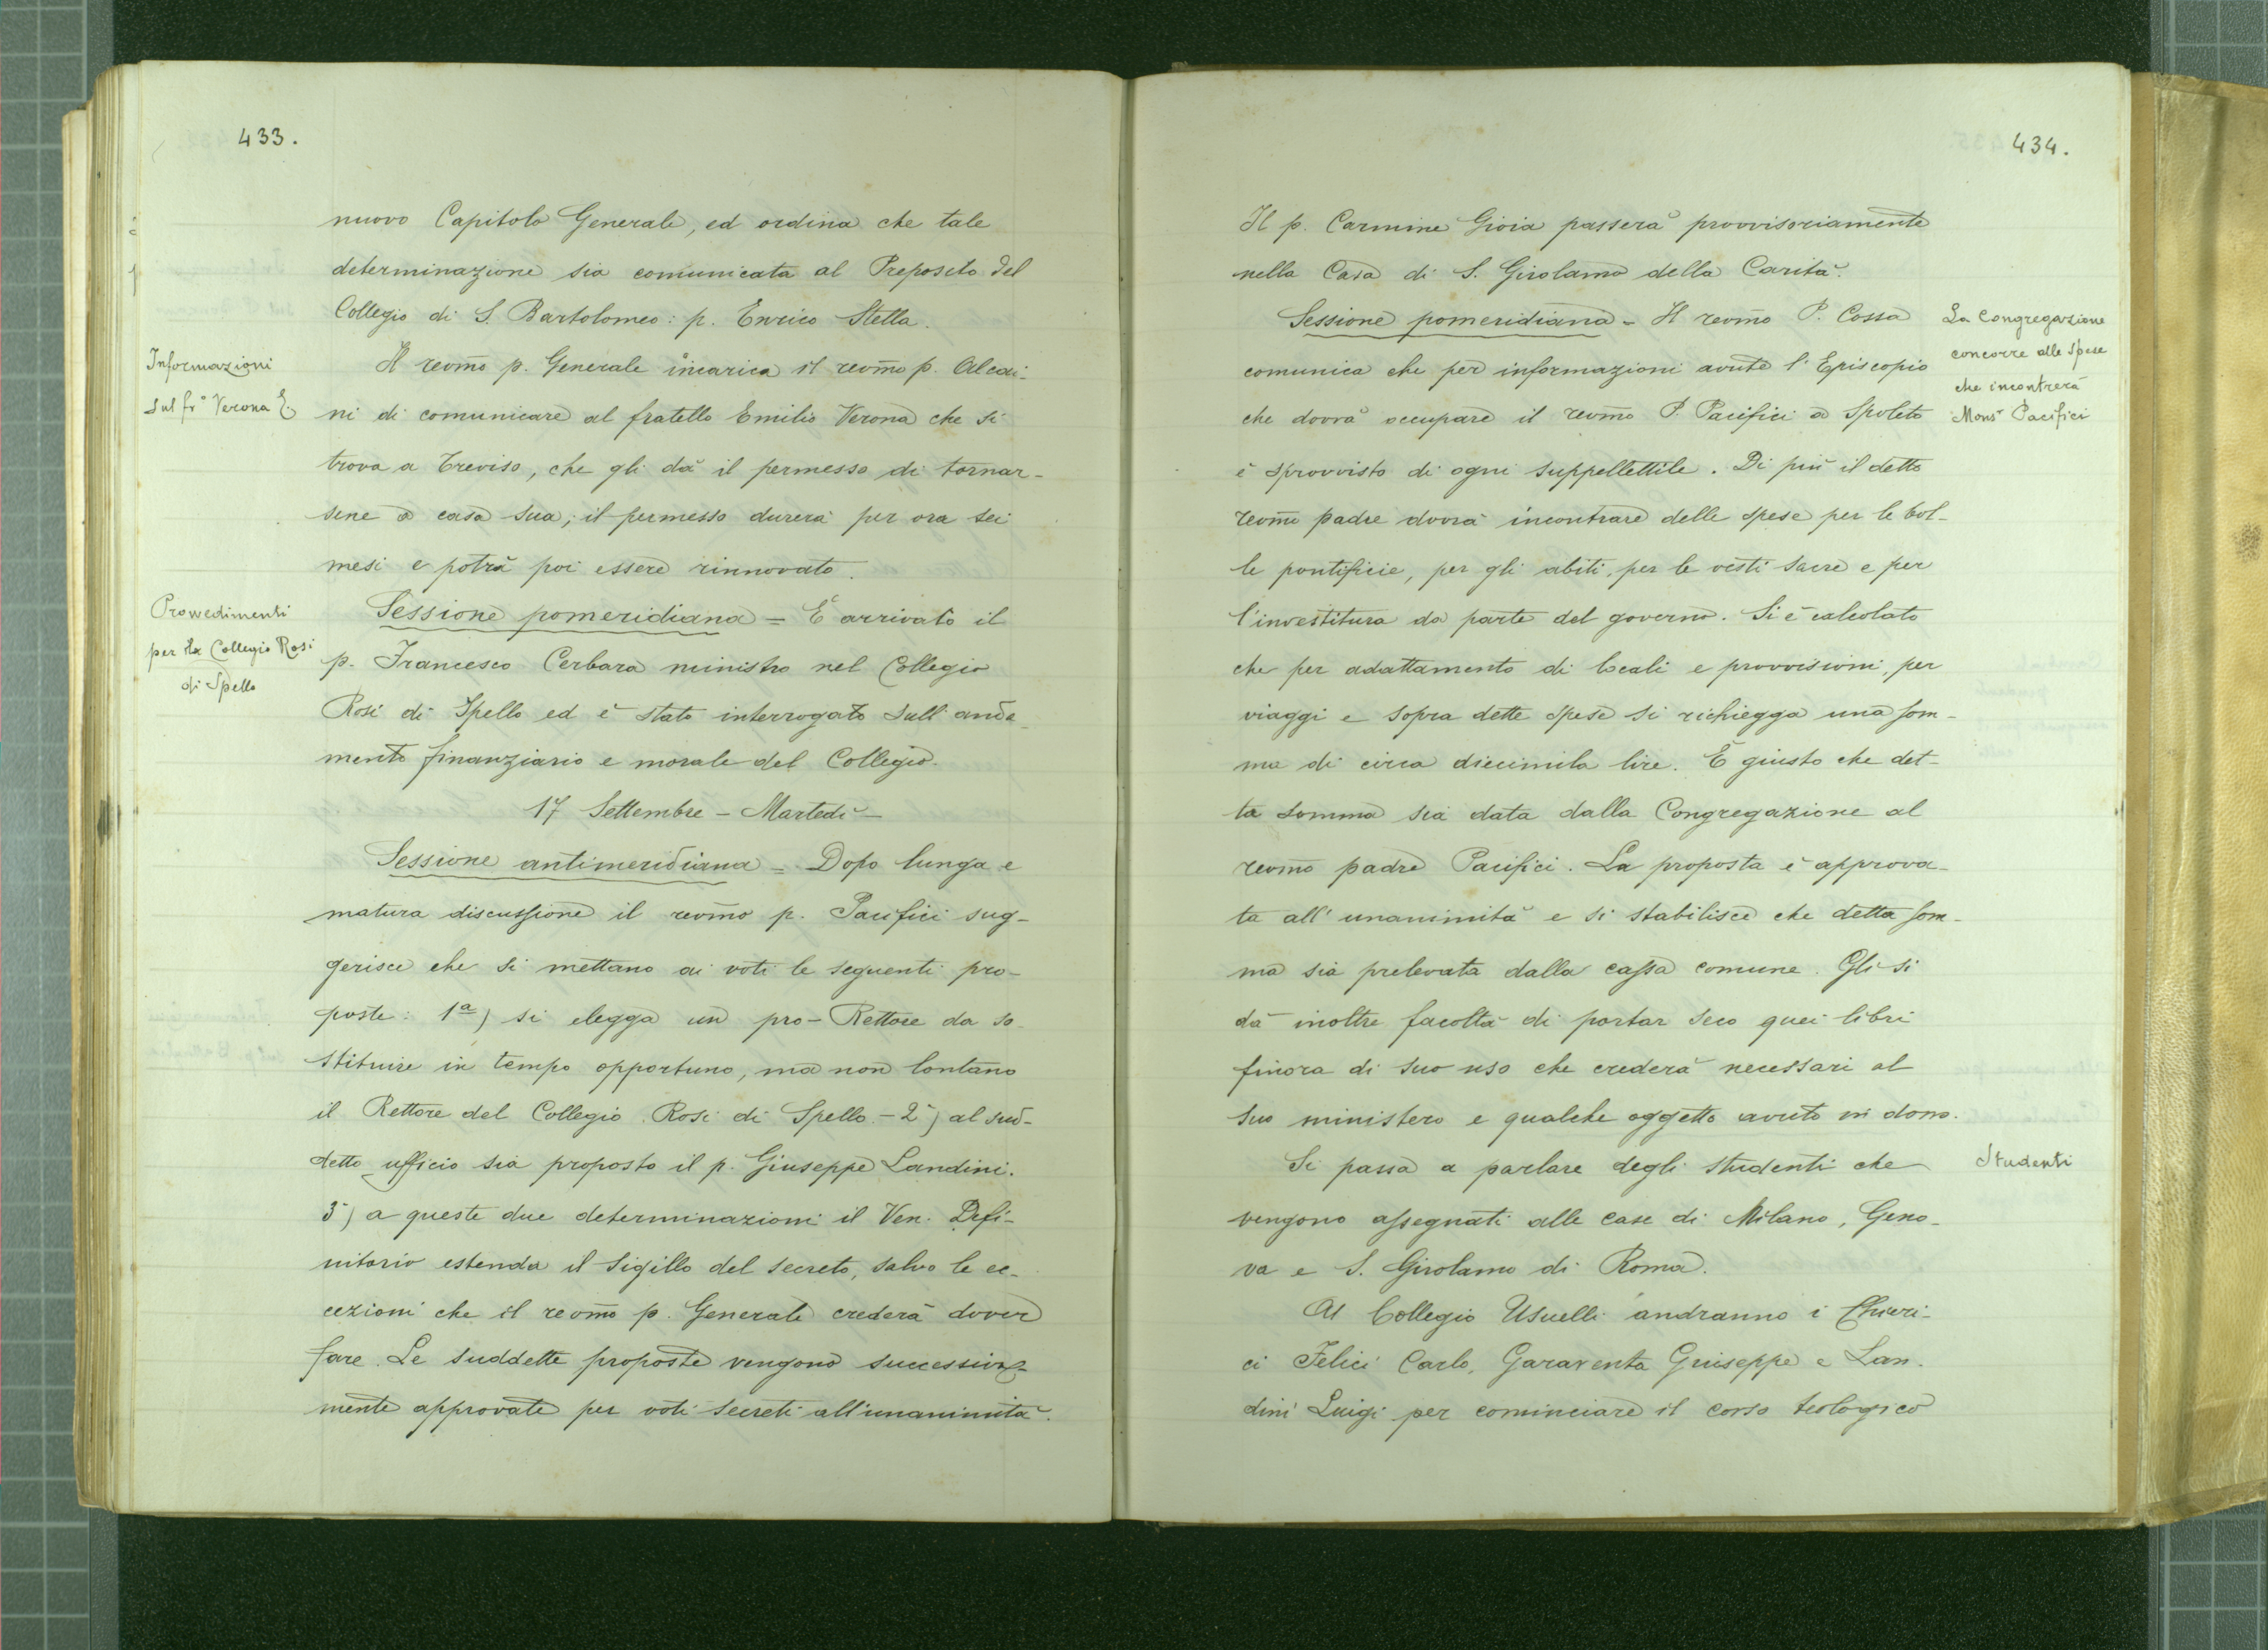 433.
nuovo Capitolo Generale, ed ordina che tale
determinazione sia comunicata al Preposito del
Collegio di S. Bartolomeo: p. Enrico Stella.
Informazioni
sul fr° Verona E.
Il revm̃o p. Generale incarica il revm̃o p. Alcai-
ni di comunicare al fratello Emilio Verona che si
trova a Treviso, che gli dà il permesso di tornar-
sene a casa sua; il permesso durerà per ora sei
mesi e potrà poi essere rinnovato.
Provvedimenti
per il Collegio Rosi
di Spello
Sessione pomeridiana = È arrivato il
p. Francesco Cerbara ministro nel Collegio
Rosi di Spello ed è stato interrogato sull'anda-
mento finanziario e morale del Collegio.
17 Settembre - Martedì -
Sessione antimeridiana = Dopo lunga e
matura discussione il revm̃o p. Pacifici sug-
gerisce che si mettano ai voti le seguenti pro-
poste: 1ª) si elegga un pro-Rettore da so-
stituire in tempo opportuno, ma non lontano
il Rettore del Collegio Rosi di Spello - 2ª) al sud-
detto ufficio sia proposto il p. Giuseppe Landini.
3ª) a queste due determinazioni il Ven. Defi-
nitorio estenda il sigillo del secreto, salvo le ec-
cezioni che il revm̃o p. Generale crederà dover
fare. Le suddette proposte vengono successiva-
mente approvate per voti secreti all'unanimità.
434.
Il p. Carmine Gioia passerà provvisoriamente
nella Casa di S. Girolamo della Carità.
La Congregazione
concorre alle spese
che incontrerà
Monsr Pacifici
Sessione pomeridiana - Il revm̃o P. Cossa
comunica che per informazioni avute l'Episcopio
che dovrà occupare il revm̃o P. Pacifici a Spoleto
è sprovvisto di ogni suppellettile. Di più il detto
revm̃o padre dovrà incontrare delle spese per le bol-
le pontificie, per gli abiti, per le vesti sacre e per
l'investitura da parte del governo. Si è calcolato
che per adattamento di locali e provvisioni, per
viaggi e sopra dette spese si richiegga una som-
ma di circa diecimila lire. È giusto che det-
ta somma sia data dalla Congregazione al
revm̃o padre Pacifici. La proposta è approva-
ta all'unanimità e si stabilisce che detta som-
ma sia prelevata dalla cassa comune. Gli si
dà inoltre facoltà di portar seco quei libri
finora di suo uso che crederà necessari al
suo ministero e qualche oggetto avuto in dono.
Studenti
Si passa a parlare degli studenti che
vengono assegnati alle case di Milano, Geno-
va e S. Girolamo di Roma.
Al Collegio Usuelli andranno i Chieri-
ci Felici Carlo, Garaventa Giuseppe e Lan-
dini Luigi per cominciare il corso teologico